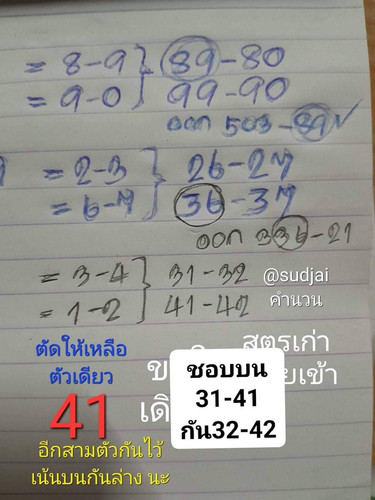 = 8-9 } 89-80
= 9-0 } 99-90
ออก 503-89✓
= 2-3 } 26-27
= 6-7 } 36-37
ออก 336-21
= 3-4 } 31-32
= 1-2 } 41-42
@sudjai
คำนวน
ตัดให้เหลือ
ตัวเดียว
41
อีกสามตัวกันไว้
เน้นบนกันล่าง นะ
สูตรเก่า
ชอบบน
31-41
กัน32-42